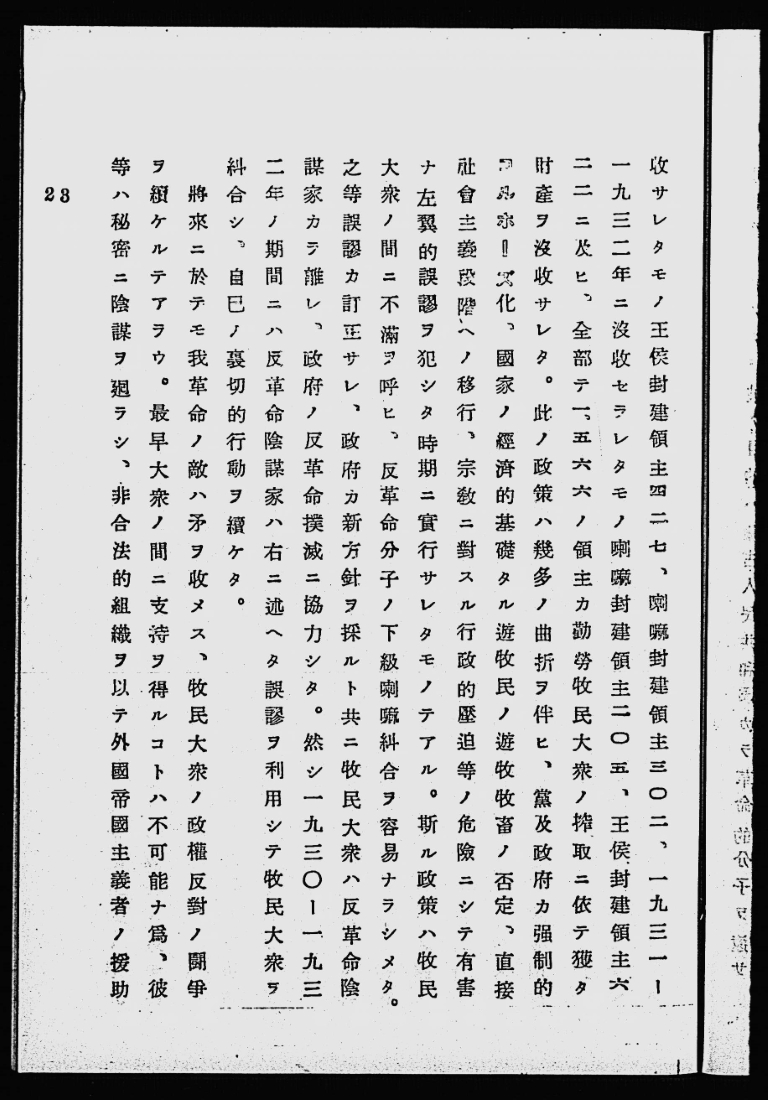 收サレタモノ王侯封建領主四二七、喇嘛封建領主三〇二、一九三一ー
一九三二年ニ沒收セラレタモノ喇嘛封建領主二〇五、王侯封建領主六
二二ニ及ヒ、全部テ一、五六六ノ領主カ勤勞牧民大衆ノ搾取ニ依テ獲タ
財產ヲ沒收サレタ。此ノ政策ハ幾多ノ曲折ヲ伴ヒ、黨及政府カ强制的
コルホーズ化、國家ノ經濟的基礎タル遊牧民ノ遊牧牧畜ノ否定、直接
社會主義段階ヘノ移行、宗敎ニ對スル行政的壓迫等ノ危險ニシテ有害
ナ左翼的誤謬ヲ犯シタ時期ニ實行サレタモノテアル。斯ル政策ハ牧民
大衆ノ間ニ不滿ヲ呼ヒ、反革命分子ノ下級喇嘛糾合ヲ容易ナラシメタ。
之等誤謬カ訂正サレ、政府カ新方針ヲ採ルト共ニ牧民大衆ハ反革命陰
謀家カラ離レ、政府ノ反革命撲滅ニ協力シタ。然シ一九三〇ー一九三
二年ノ期間ニハ反革命陰謀家ハ右ニ述ヘタ誤謬ヲ利用シテ牧民大衆ヲ
糾合シ、自己ノ裏切的行動ヲ續ケタ。
將來ニ於テモ我革命ノ敵ハ矛ヲ收メス、牧民大衆ノ政權反對ノ鬪爭
ヲ續ケルテアラウ。最早大衆ノ間ニ支持ヲ得ルコトハ不可能ナ爲、彼
等ハ秘密ニ陰謀ヲ廻ラシ、非合法的組織ヲ以テ外國帝國主義者ノ援助
23